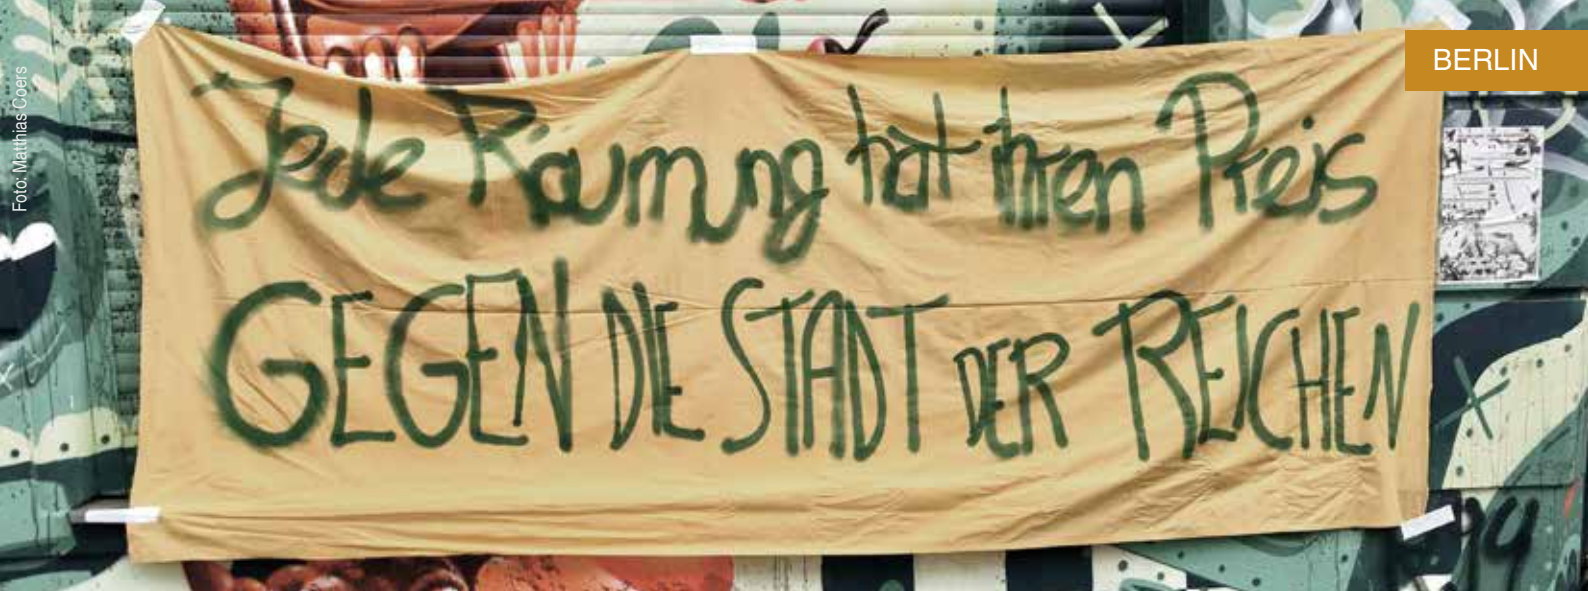 Foto: Matthias Coers
BERLIN
Jede Räumung hat ihren Preis
GEGEN DIE STADT DER REICHEN